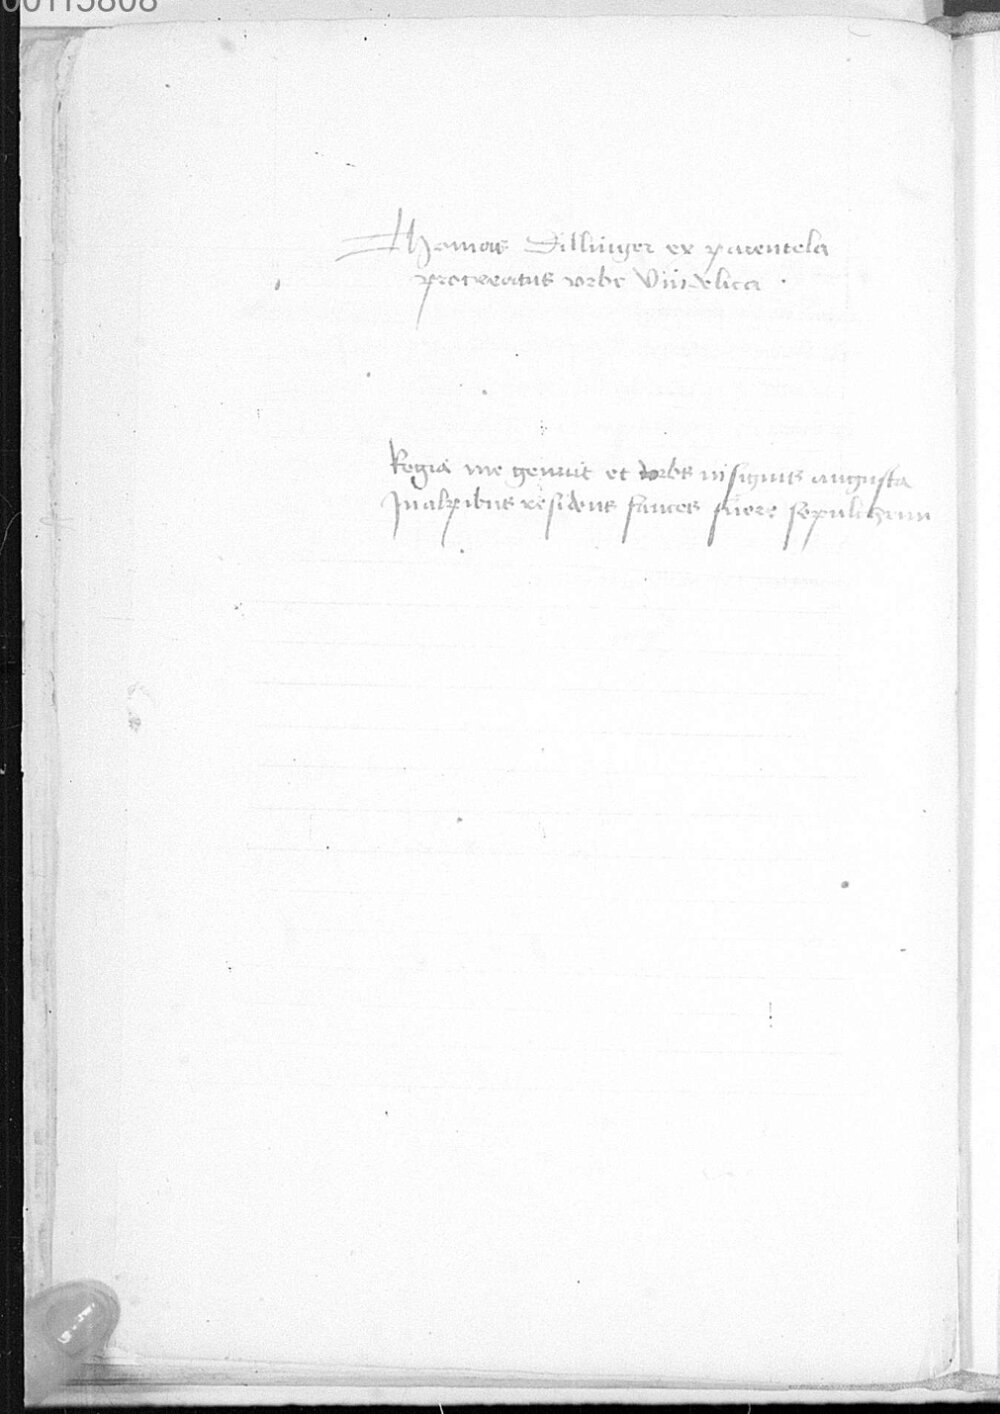 00115808
Thomas Dillinger ex parentela
procreatus vrbe Vindelica .
Regia me genuit et vrbs insignis augusta
In alpibus residens fauces fuere sepulchrum